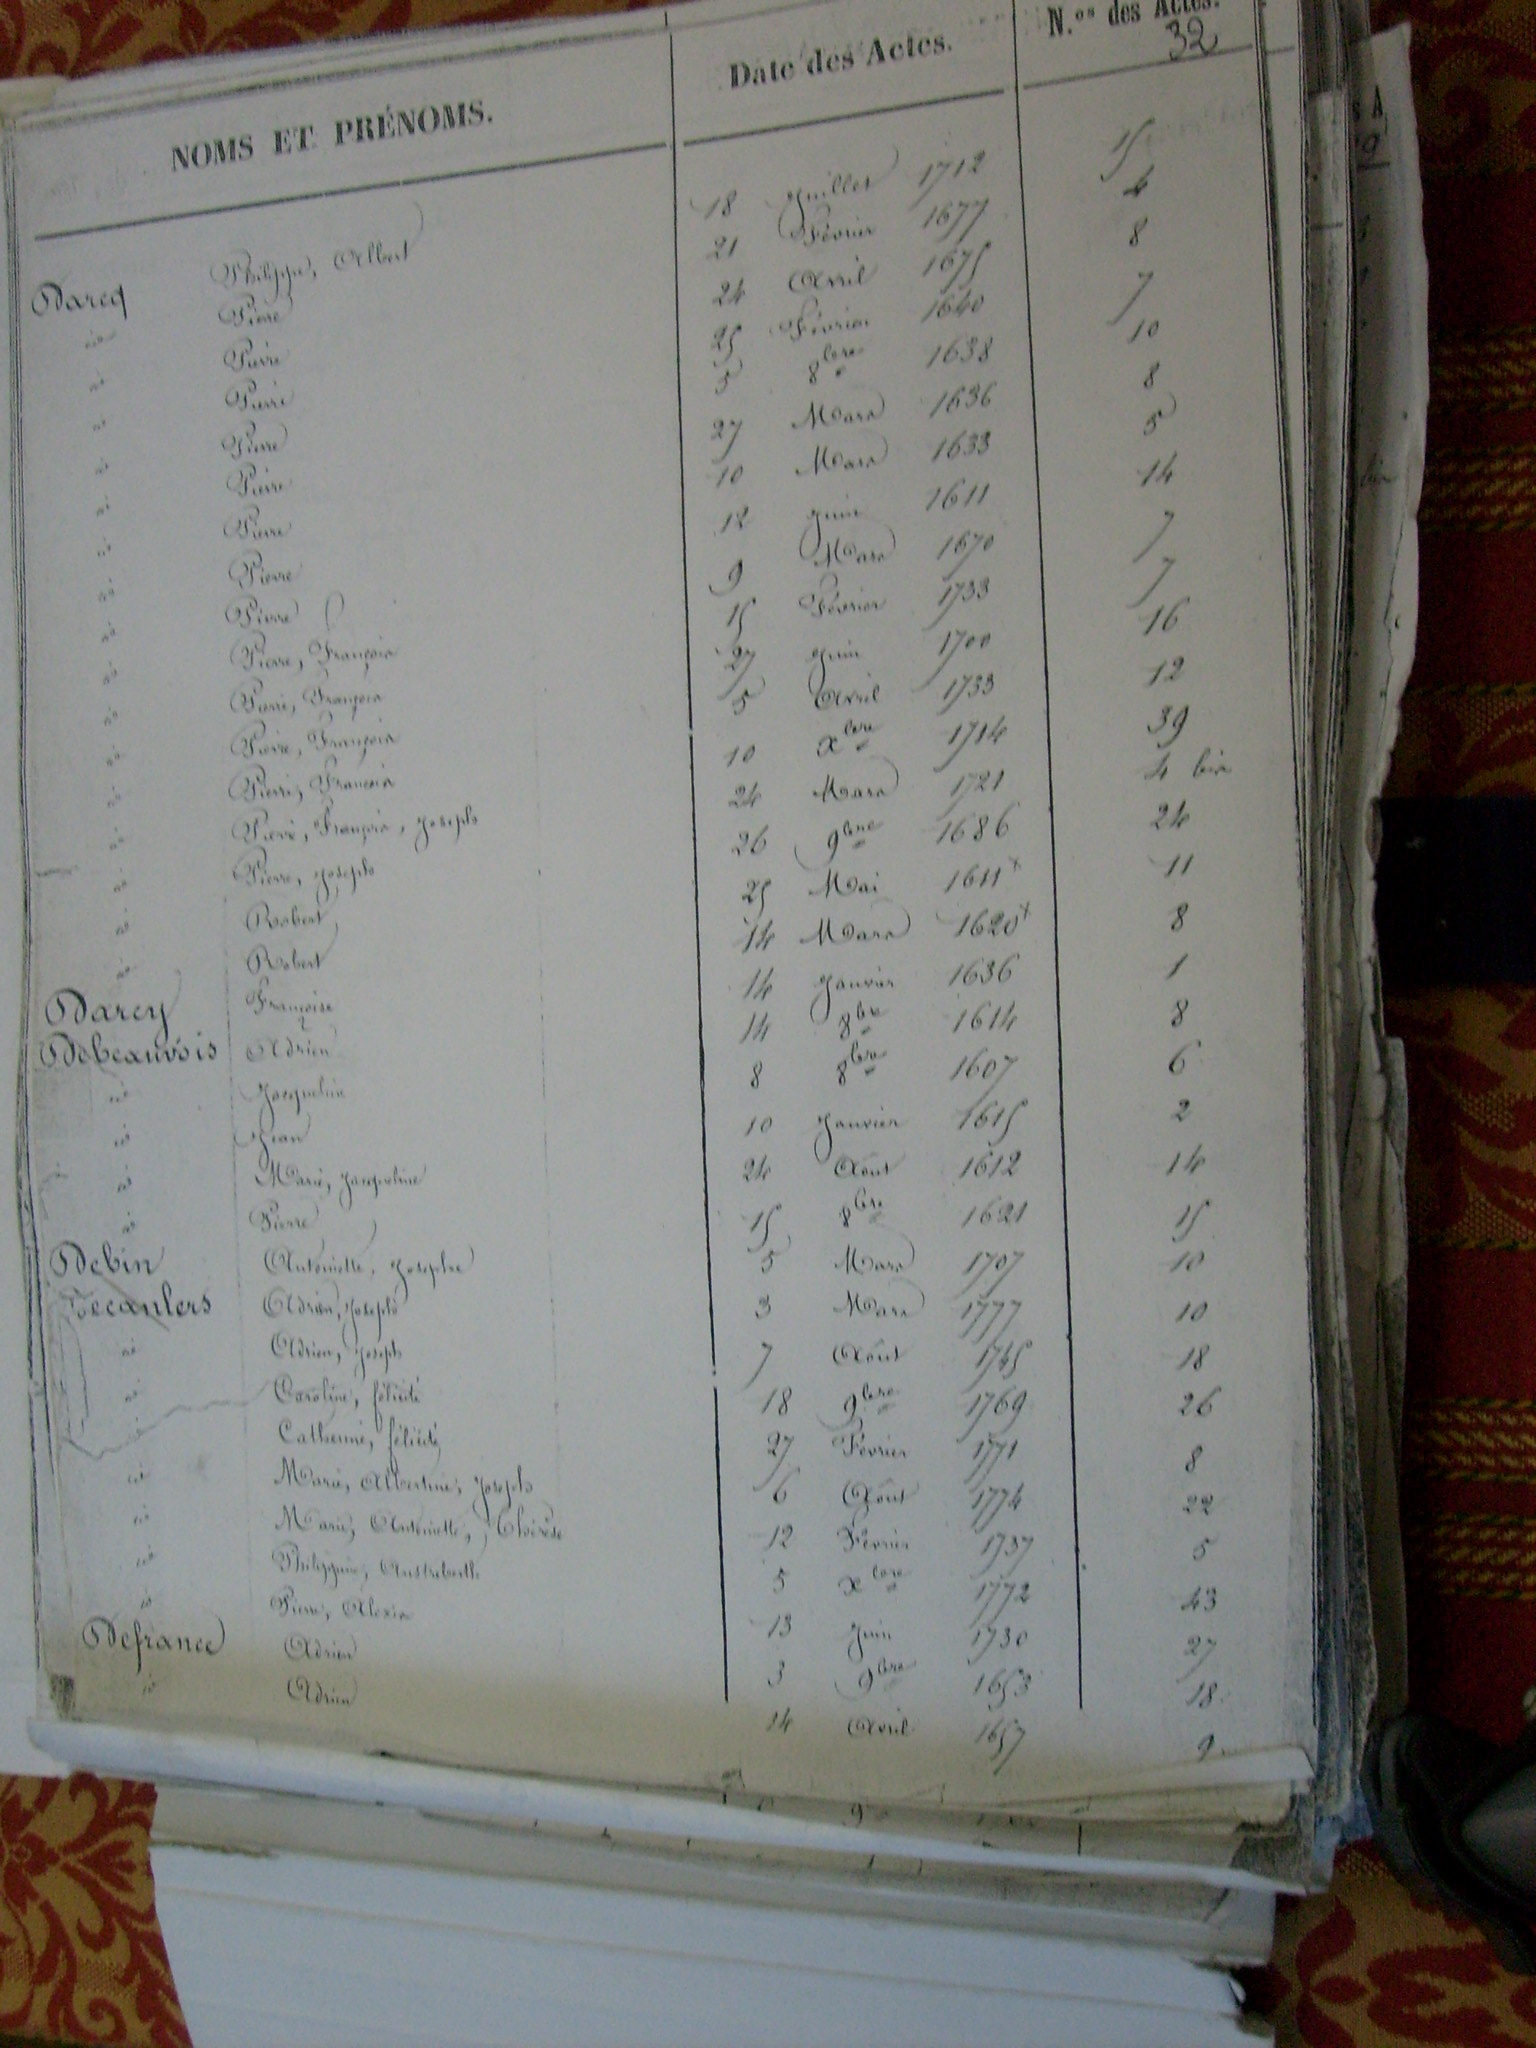 NOMS ET PRÉNOMS. Date des Actes. N.os des Actes.
32
Darcq Philippe, Albert 18 Juillet 1712 15
id Pierre 21 Février 1677 4
id Pierre 24 Avril 1675 8
id Pierre 25 Février 1640 7
id Pierre 5 8bre 1638 10
id Pierre 27 Mars 1636 8
id Pierre 10 Mars 1633 5
id Pierre 12 Juin 1611 14
id Pierre 9 Mars 1670 7
id Pierre, François 15 Février 1733 7
id Pierre, François 27 Juin 1700 16
id Pierre, François 5 Avril 1733 12
id Pierre, François 10 xbre 1714 39
id Pierre, François, Joseph 24 Mars 1721 4 bis
id Pierre, Joseph 26 9bre 1686 24
id Robert 25 Mai 1611x 11
id Robert 14 Mars 1620x 8
Darcy Françoise 14 Janvier 1636 1
Debeauvois Adrien 14 8bre 1614 8
id Jacqueline 8 8bre 1607 6
id Jean 10 Janvier 1615 2
id Marie, Jacqueline 24 Août 1612 14
id Pierre 15 8bre 1621 15
Debin Antoinette, Josephe 5 Mars 1707 10
Decanlers Adrien, Joseph 3 Mars 1777 10
id Adrien, Joseph 7 Août 1745 18
id Caroline, félicité 18 9bre 1769 26
Catherine, félicité 27 Février 1771 8
id Marie, Albertine, Joseph 6 Août 1774 22
id Marie, Antoinette, Thérèse 12 Février 1737 5
id Philippine, Austreberthe 5 xbre 1772 43
id Pierre, Alexis 13 Juin 1730 27
Defrance Adrien 3 9bre 1653 18
id Adrien 14 Avril 1657 9